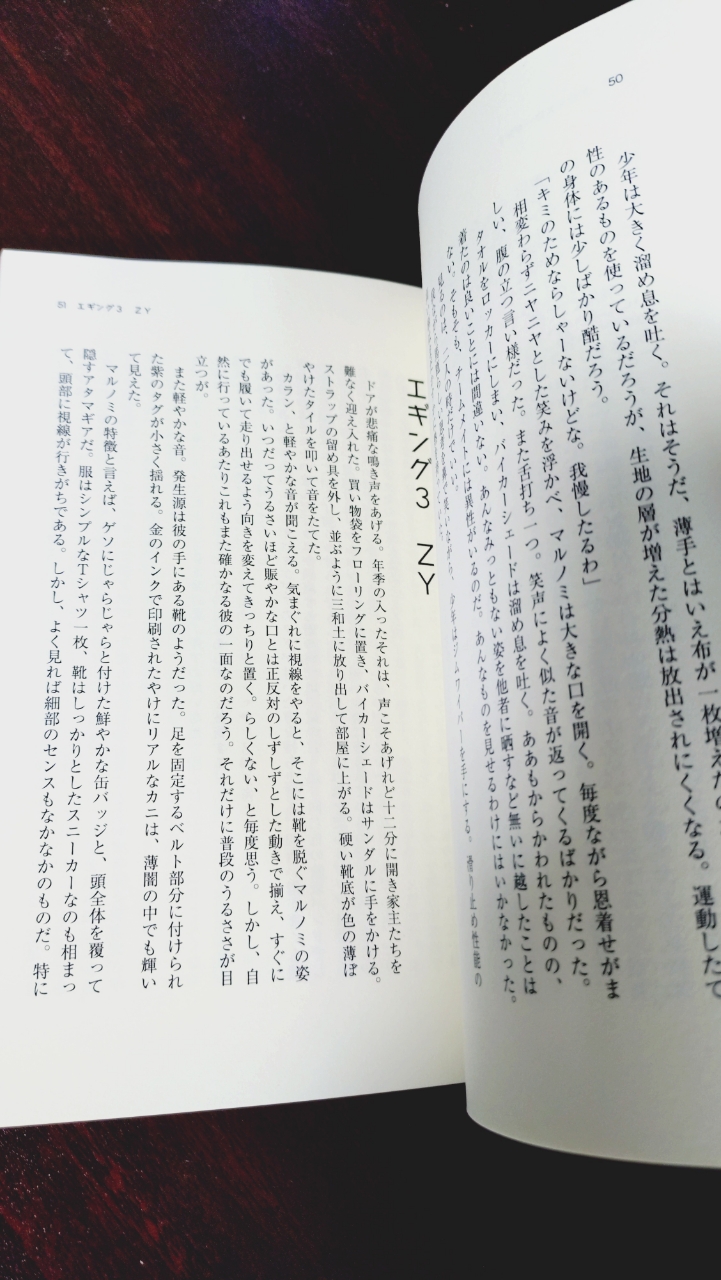 50
少年は大きく溜め息を吐く。それはそうだ、薄手とはいえ布が一枚増えたの
性のあるものを使っているだろうが、生地の層が増えた分熱は放出されにくくなる。運動したて
の身体には少しばかり酷だろう。
「キミのためならしゃーないけどな。我慢したるわ」
相変わらずニヤニヤとした笑みを浮かべ、マルノミは大きな口を開く。毎度ながら恩着せがま
しい、腹の立つ言い様だった。また舌打ち一つ。笑声によく似た音が返ってくるばかりだった。
タオルをロッカーにしまい、バイカーシェードは溜め息を吐く。ああもからかわれたものの、
着たのは良いことには間違いない。あんなみっともない姿を他者に晒すなど無いに越したことは
ない。そもそも、チームメイトには異性がいるのだ。あんなものを見せるわけにはいかなかった。
少年はジムワイパーを手にする。滑り止め性能の
51 エギング3 ZY
エギング3 ZY
ドアが悲痛な鳴き声をあげる。年季の入ったそれは、声こそあげれど十二分に開き家主たちを
難なく迎え入れた。買い物袋をフローリングに置き、バイカーシェードはサンダルに手をかける。
ストラップの留め具を外し、並ぶように三和土に放り出して部屋に上がる。硬い靴底が色の薄ぼ
やけたタイルを叩いて音をたてた。
カラン、と軽やかな音が聞こえる。気まぐれに視線をやると、そこには靴を脱ぐマルノミの姿
があった。いつだってうるさいほど賑やかな口とは正反対のしずしずとした動きで揃え、すぐに
でも履いて走り出せるよう向きを変えてきっちりと置く。らしくない、と毎度思う。しかし、自
然に行っているあたりこれもまた確かなる彼の一面なのだろう。それだけに普段のうるささが目
立つが。
また軽やかな音。発生源は彼の手にある靴のようだった。足を固定するベルト部分に付けられ
た紫のタグが小さく揺れる。金のインクで印刷されたやけにリアルなカニは、薄闇の中でも輝い
て見えた。
マルノミの特徴と言えば、ゲソにじゃらじゃらと付けた鮮やかな缶バッジと、頭全体を覆って
隠すアタマギアだ。服はシンプルなTシャツ一枚、靴はしっかりとしたスニーカーなのも相まっ
て、頭部に視線が行きがちである。しかし、よく見れば細部のセンスもなかなかのものだ。特に